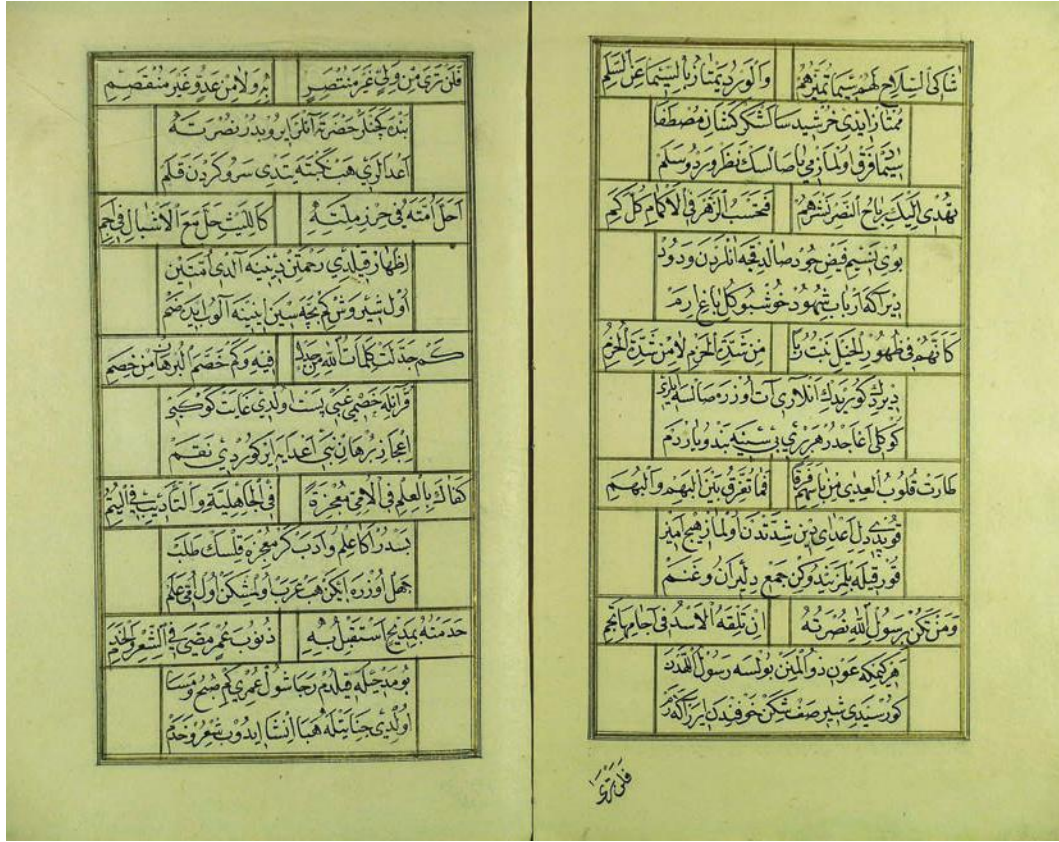 شَاكِي السِّلَاحِ لَهُمْ سِيمَا تُمَيِّزُهُمْ وَالْوَرْدُ يَمْتَازُ بِالسِّيمَا عَنِ السَّلَمِ
ممتاز ايدى خرشيد
سيما فرق اولماز مى نظر ورد و سلم
تُهْدِي اِلَيْكَ رِيَاحُ النَّصْرِ نَشْرَهُمُ فَتَحْسَبُ الزَّهْرَ فِي الْاَكْمَامِ كُلَّ كَمِ
بوى نسيم فيض جود انلردن ودود
ارباب شهود خوشبو كل باغ ارم
كَاَنَّهُمْ فِي ظُهُورِ الْخَيْلِ نَبْتُ رُبًا مِنْ شَدَّةِ الْحَزْمِ لَامِنْ شَدَّةِ الْحُزُمِ
ديردك كوريدك انلارى آت اوزره
كوكلى اغاجدر هر برى
طَارَتْ قُلُوبُ الْعِدَى مِنْ بَأْسِهِمْ فَرَقًا فَمَا تُفَرِّقُ بَيْنَ الْبَهْمِ وَالْبُهَمِ
دل اعداى دين شدتدن اولماز هيچ امين
جمع دليران و غنم
وَمَنْ تَكُنْ بِرَسُولِ اللهِ نُصْرَتُهُ اِنْ تَلْقَهُ الْاُسْدُ فِي آجَامِهَا تَجِمِ
هر كيمكه عون ذو المنن بولسه رسول اللهدن
كورسيدى شير صف شكن خوفندن
فلن ترى
فَلَنْ تَرَى مِنْ وَلِيٍّ غَيْرَ مُنْتَصِرٍ بِهِ وَلَا مِنْ عَدُوٍّ غَيْرَ مُنْقَصِمِ
بنده حضرته آنلر ايرو بدر نصرته
اعدالرى هب نكبته يتدى سر و كردن قلم
اَحَلَّ اُمَّتَهُ فِي حِرْزِ مِلَّتِهِ كَاللَّيْثِ حَلَّ مَعَ الْاَشْبَالِ فِي اَجَمِ
اظهار قيلدى رحمتن دينينه آلدى امتين
اول شير وش كم بچه سين اينينه آلوب ايده ضم
كَمْ جَدَّلَتْ كَلِمَاتُ اللهِ مِنْ جَدِلٍ فِيهِ وَكَمْ خَصَمَ الْبُرْهَانُ مِنْ خَصِمِ
قرانله خصمى غبى پست اولدى غايت كوكبى
اعجاز برهان نبى اعدايه
كَفَاكَ بِالْعِلْمِ فِي الْاُمِّيِّ مُعْجِزَةً فِي الْجَاهِلِيَّةِ وَالتَّأْدِيبِ فِي الْيُتُمِ
بسدر اكا علم و ادب كر معجزه قلسك طلب
جهل اوزره ايكن هب عرب اولمشكن اول امى علم
خَدَمْتُهُ بِمَدِيحٍ اَسْتَقِيلُ بِهِ ذُنُوبَ عُمْرٍ مَضَى فِي الشِّعْرِ وَالْخِدَمِ
بو مدحله قيلدم رجا شول عمرى كم صبح و مسا
اولدى جنايتله هبا انشا ايدوب شعر و خدم